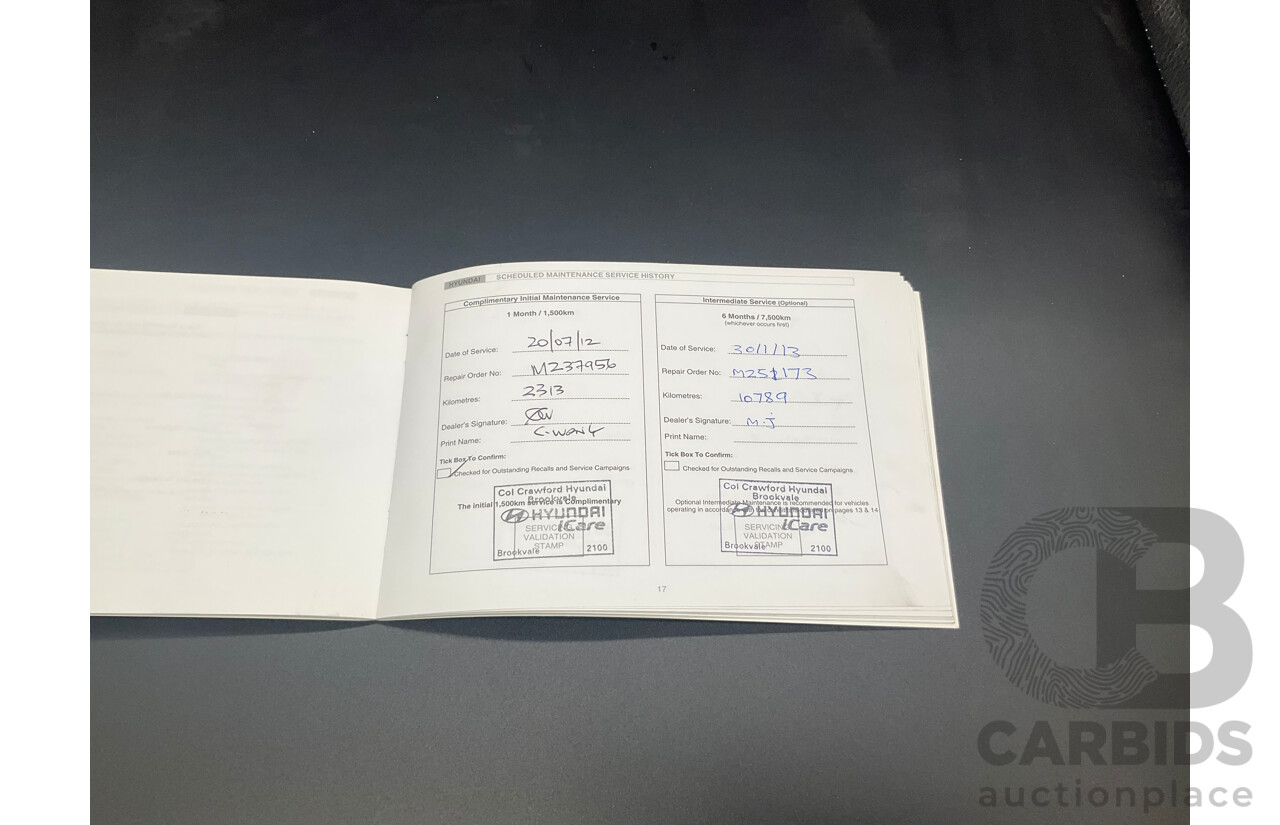 HYUNDAI SCHEDULED MAINTENANCE SERVICE HISTORY
Complimentary Initial Maintenance Service
1 Month / 1,500km
Date of Service: 20/07/12
Repair Order No: M237956
Kilometres: 2313
Dealer's Signature:
Print Name: C-WONG
Tick Box To Confirm:
Checked for Outstanding Recalls and Service Campaigns
The initial 1,500km service is Complimentary
Col Crawford Hyundai
Brookvale
HYUNDAI
iCare
SERVICING
VALIDATION
STAMP
Brookvale 2100
Intermediate Service (Optional)
6 Months / 7,500km
(whichever occurs first)
Date of Service: 30/1/13
Repair Order No: M251173
Kilometres: 10789
Dealer's Signature: M.J
Print Name:
Tick Box To Confirm:
Checked for Outstanding Recalls and Service Campaigns
Optional Intermediate Maintenance is recommended for vehicles
operating in accordance with the pages 13 & 14
Col Crawford Hyundai
Brookvale
HYUNDAI
iCare
SERVICING
VALIDATION
STAMP
Brookvale 2100
17
CB
CARBIDS
auctionplace